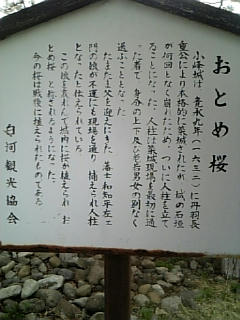 おとめ桜
小峰城は、寛永九年(一六三二)に丹羽長
重公により本格的に築城されたが、城の石垣
が何回となく崩れたため、ついに人柱を立て
ることになった。人柱は築城現場を最初に通
った者で、身分の上下及び老若男女の別なく
選ぶこととなった。
たまたま父を迎えにきた、藩士和知平左エ
門の娘が不運にも現場を通り、捕えられ人柱
となったと伝えられている。
この娘を哀れんで城内に桜が植えられ、お
とめ桜と称されるようになった。
今の桜は戦後に植えられたものである。
白河観光協会